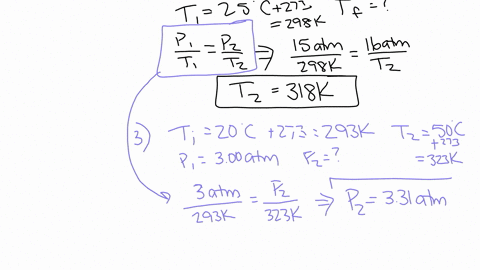 T₁ = 25°C + 273 = 298K T_f = ?
P₁/T₁ = P₂/T₂ ⇒ 15 atm/298K = 16 atm/T₂
T₂ = 318K
3) T₁ = 20°C + 273 = 293K T₂ = 50°C + 273 = 323K
P₁ = 3.00 atm P₂ = ?
3 atm/293K = P₂/323K ⇒ P₂ = 3.31 atm